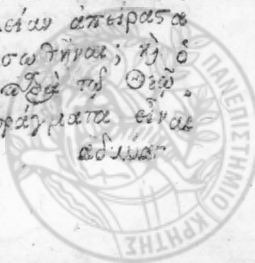 λείαν ἀπείρατα
σωθῆναι; καὶ ὁ
παρὰ τῷ Θεῷ,
πράγματα εἶναι
ἀδυνατ
ΠΑΝΕΠΙΣΤΗΜΙΟ ΚΡΗΤΗΣ